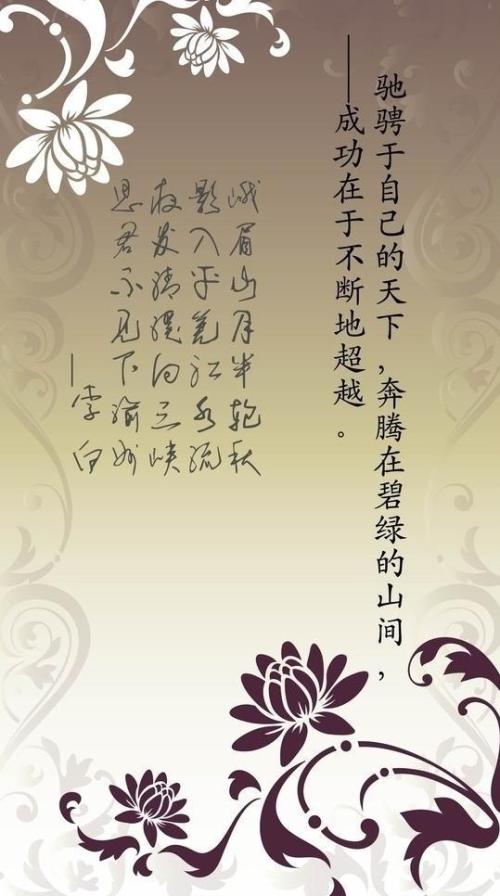 驰骋于自己的天下,奔腾在碧绿的山间,
——成功在于不断地超越。
峨眉山月半轮秋
影入平羌江水流
夜发清溪向三峡
思君不见下渝州
—李白